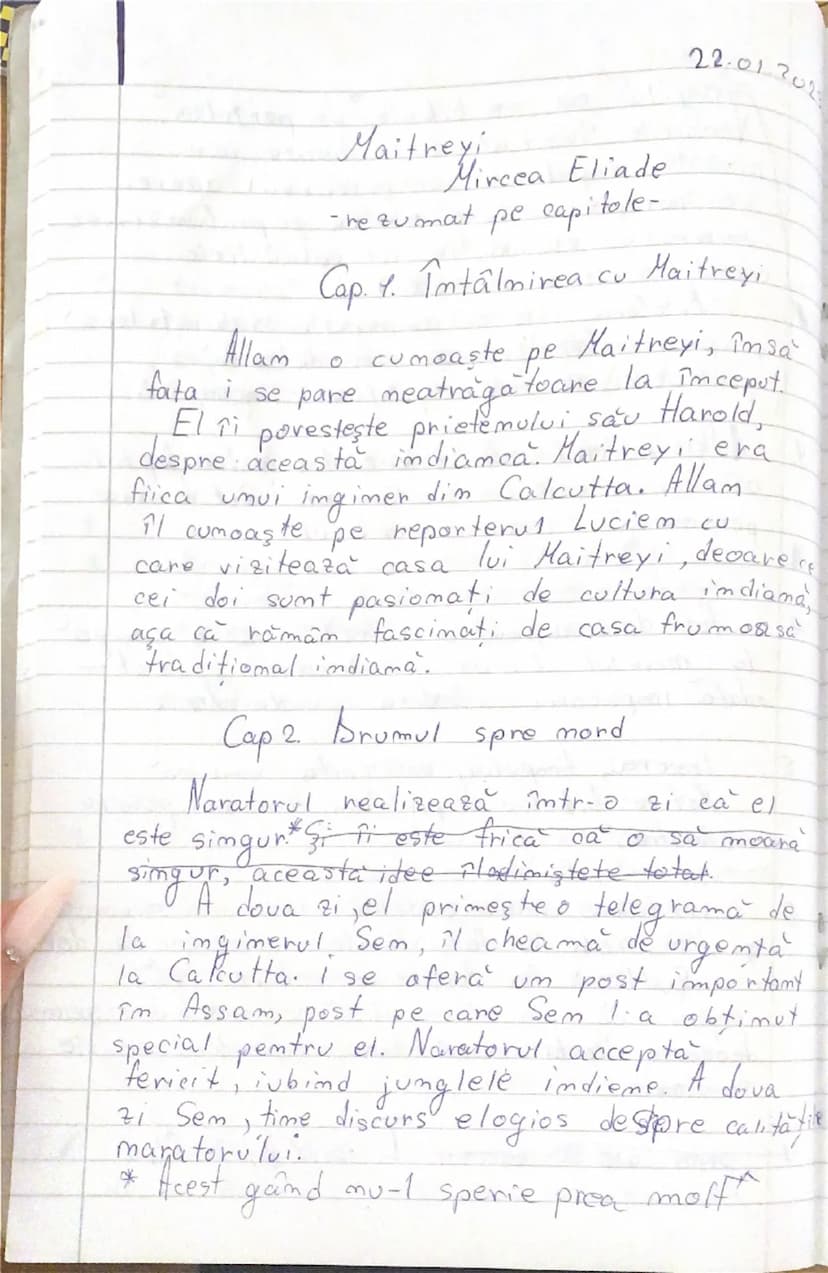 22.01.202
Maitreyi
Mircea Eliade
-rezumat pe capitole-
Cap. 1. Întâlnirea cu Maitreyi
Allan o cunoaște pe Maitreyi, însă
fata i se pare neatrăgătoare la început.
El îi povestește prietenului său Harold,
despre această indiancă. Maitreyi era
fiica unui inginer din Calcutta. Allan
îl cunoaște pe reporterul Lucien cu
care vizitează casa lui Maitreyi, deoarece
cei doi sunt pasionați de cultura indiană,
așa că rămân fascinați de casa frumoasă
tradițional indiană.
Cap 2. Drumul spre nord
Naratorul realizează într-o zi că el
este singur.* Și îi este frică că o să moară
singur, această idee îl liniștește total.
A doua zi, el primește o telegramă de
la inginerul Sen, îl cheamă de urgență
la Calcutta. i se oferă un post important
în Assam, post pe care Sen l-a obținut
special pentru el. Naratorul acceptă
fericit, iubind junglele indiene. A doua
zi Sen, ține discurs elogios despre calitățile
naratorului.
* Acest gând nu-l sperie prea mult*